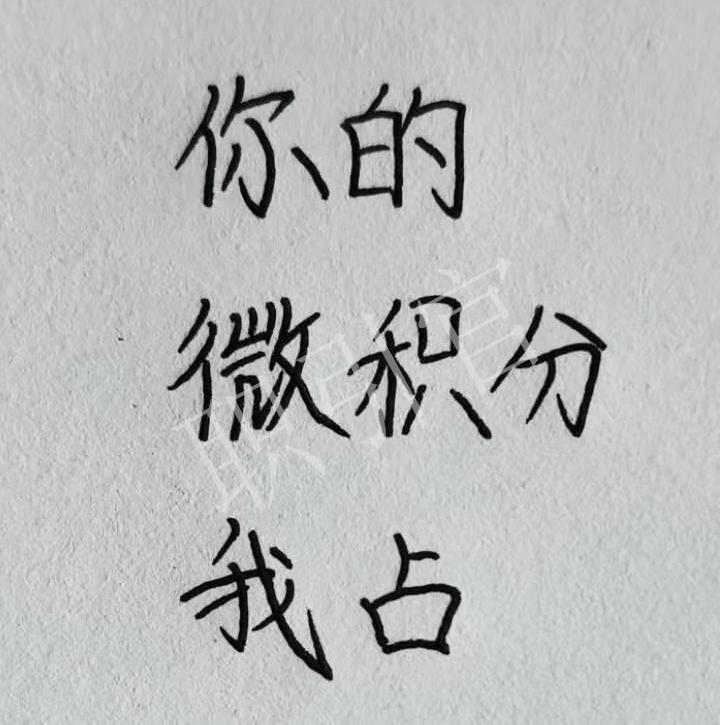 你的
微积分
我占